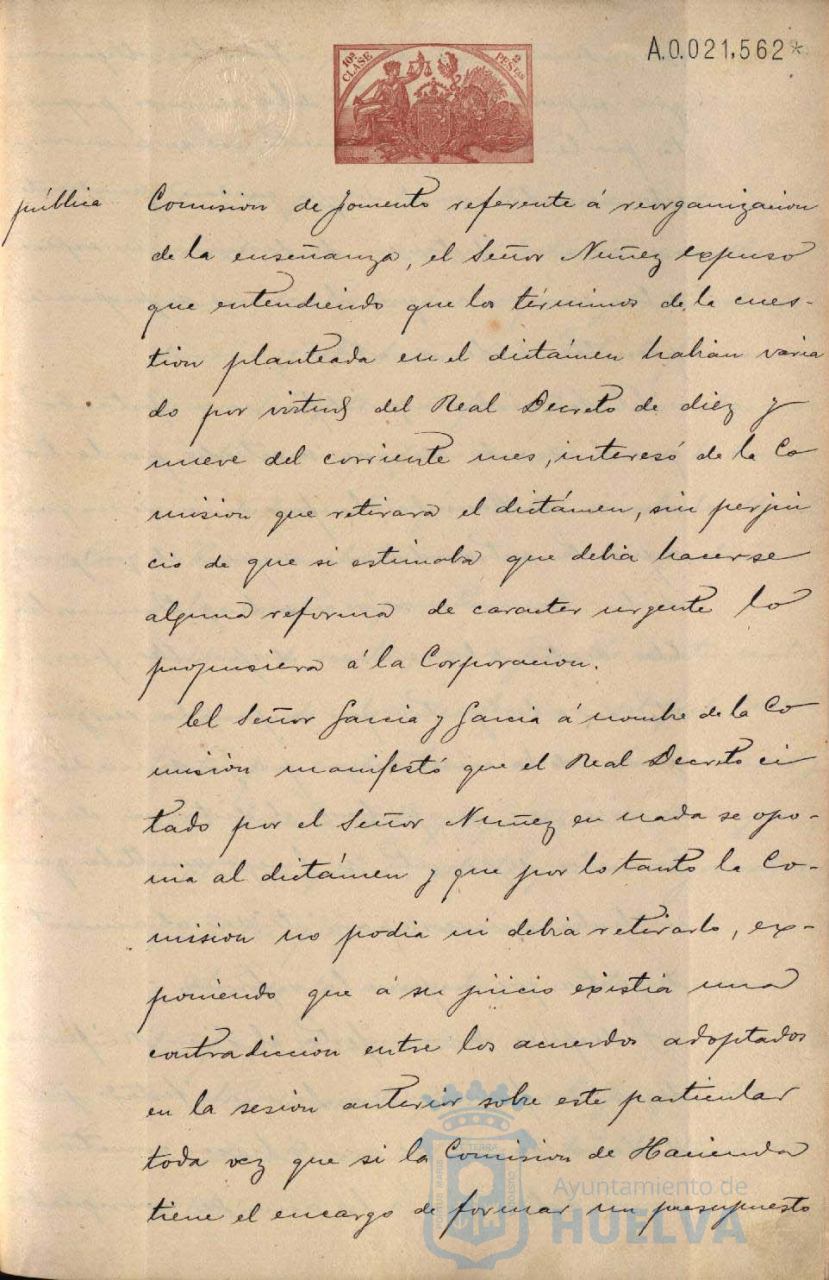 A.0.021,562*
10ª CLASE
2 PESTAS
pública
Comision de fomento referente á reorganizacion
de la enseñanza, el Señor Nuñez expuso
que entendiendo que los términos de la cues-
tion planteada en el dictámen habian varia
do por virtud del Real Decreto de diez y
nueve del corriente mes, interesó de la Co
mision que retirara el dictámen, sin perjui
cio de que si estimaba que debia hacerse
alguna reforma de caracter urgente lo
propusiera á la Corporacion.
El Señor Garcia y Garcia á nombre de la Co
misión manifestó que el Real Decreto ci
tado por el Señor Nuñez en nada se opo-
nia al dictámen y que por lo tanto la Co-
mision no podia ni debia retirarlo, ex-
poniendo que á su juicio existia una
contradiccion entre los acuerdos adoptados
en la sesión anterior sobre este particular
toda vez que si la Comision de Hacienda
tiene el encargo de formar un presupuesto
Ayuntamiento de
HUELVA